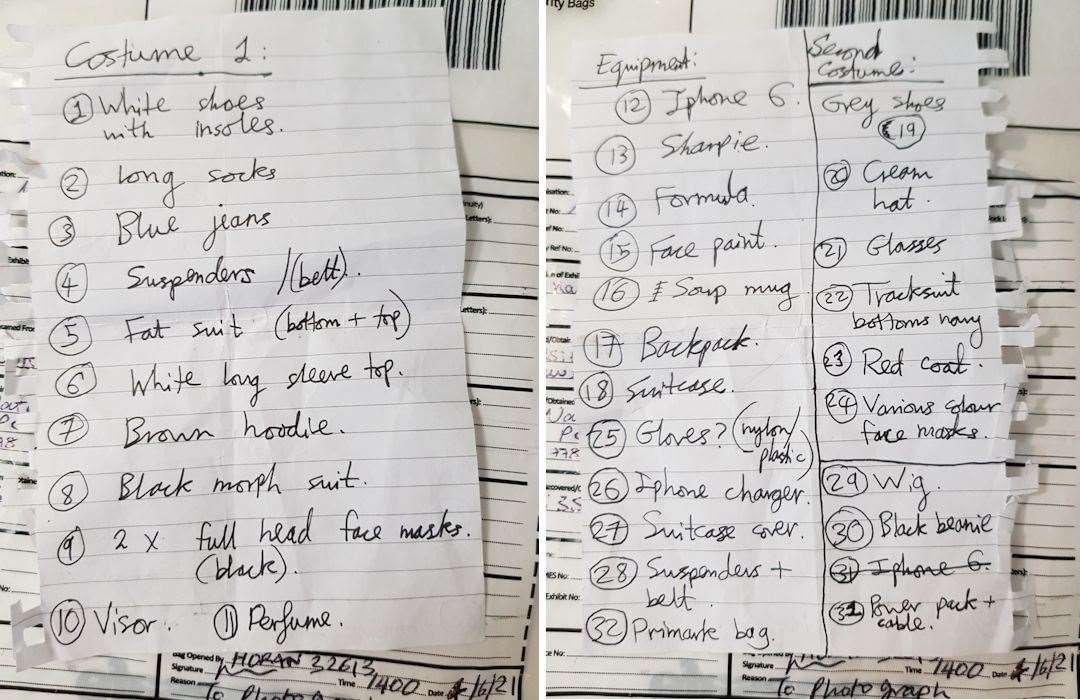 Costume 1:
① White shoes
with insoles.
② long socks
③ Blue jeans
④ Suspenders / (belt).
⑤ Fat suit (bottom + top)
⑥ White long sleeve top.
⑦ Brown hoodie.
⑧ Black morph suit.
⑨ 2 x full head face masks.
(black).
⑩ Visor. ⑪ Perfume.
Bag Opened By HORAN 32613
Signature Time 1400 Date /6/21
Reason To Photograph
ity Bags
Equipment:
⑫ Iphone 6.
⑬ Sharpie.
⑭ Formula.
⑮ Face paint.
⑯ Soup mug
⑰ Backpack.
⑱ Suitcase.
㉕ Gloves? (nylon/
plastic)
㉖ Iphone charger.
㉗ Suitcase cover.
㉘ Suspenders +
belt.
㉜ Primark bag.
Second
Costume:
Grey shoes
⑲
⑳ Cream
hat.
㉑ Glasses
㉒ Tracksuit
bottoms navy
㉓ Red coat.
㉔ Various colour
face masks.
㉙ Wig.
㉚ Black beanie
㉛ Iphone 6.
㉛ Power pack +
cable.
Signature Time 1400 Date /6/21
Reason To Photograph